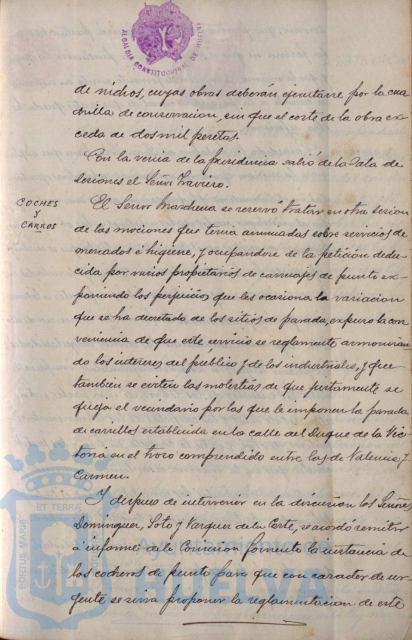 ALCALDIA CONSTITUCIONAL DE HUELVA
de nichos, cuyas obras deberán ejecutarse por la cua
drilla de conservacion, sin que el coste de la obra ex
ceda de dos mil pesetas.
Con la venia de la Presidencia salió de la Sala de
Sesiones el Señor Traviero.
COCHES
Y
CARROS
El Señor Marchena se reservó tratar en otra sesion
de las mociones que tenia anunciadas sobre servicios de
mercados é higiene, y ocupandose de la peticion dedu
cida por varios propietarios de carruajes de punto ex
poniendo los perjuicios que les ocasiona la variacion
que se ha decretado de los sitios de parada, expuso la con
veniencia de que este servicio se reglamente armonizan
do los intereses del publico y de los industriales, y que
tambien se eviten las molestias de que justamente se
queja el vecindario por las que le imponen la parada
de carrillos establecida en la calle del Duque de la Vic
toria en el trozo comprendido entre las de Valencia y
Carmen.
Y despues de intervenir en la discusion los Señores
Dominguez, Soto y Vazquez de la Corte, se acordó remitir
á informe de la Comision fomento la instancia de
los cocheros de punto para que con caracter de ur
gente se sirva proponer la reglamentacion de este
PORTUS MARIS ET TERRAE